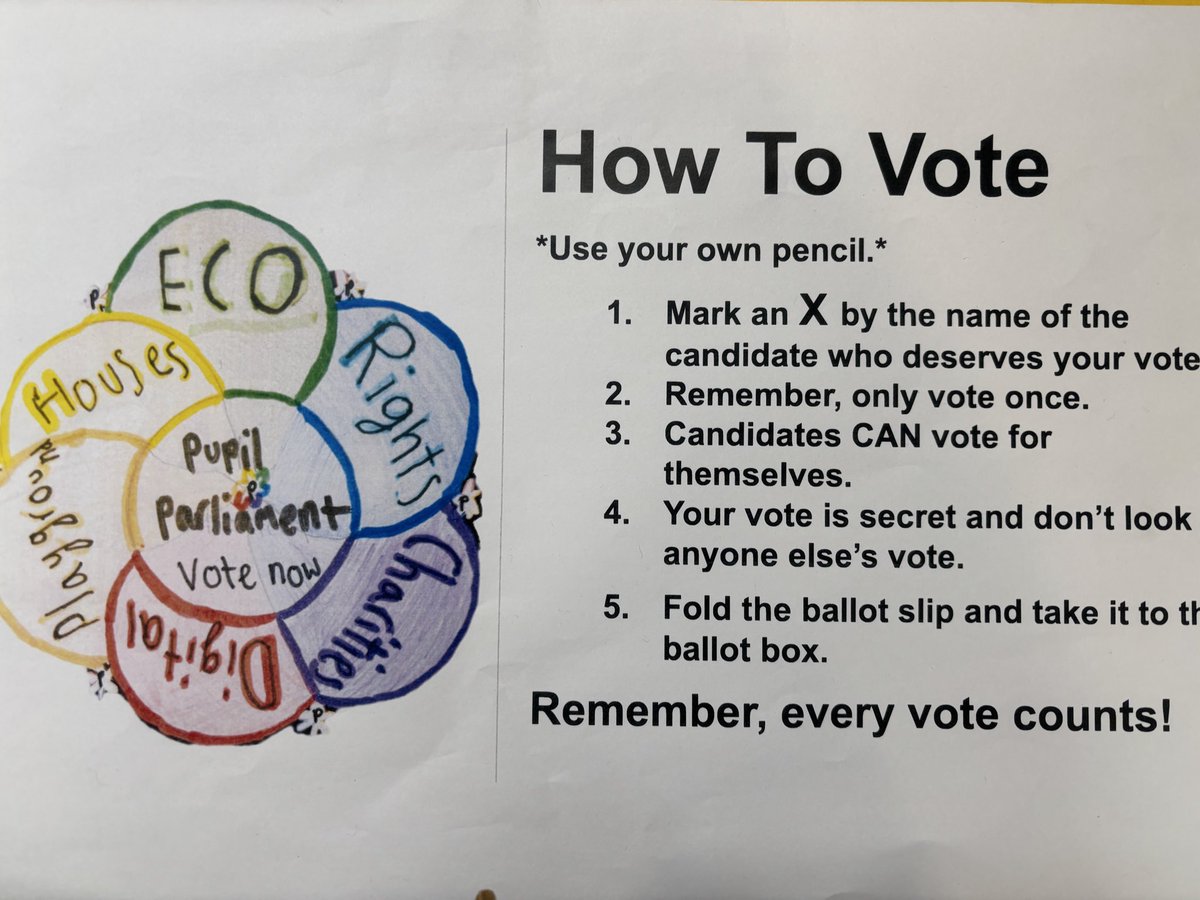 ECO
Rights
Houses
Pupil
Parliament
Vote now
Playground
Charities
Digital
How To Vote
*Use your own pencil.*
1. Mark an X by the name of the
candidate who deserves your vote
2. Remember, only vote once.
3. Candidates CAN vote for
themselves.
4. Your vote is secret and don't look
anyone else's vote.
5. Fold the ballot slip and take it to th
ballot box.
Remember, every vote counts!